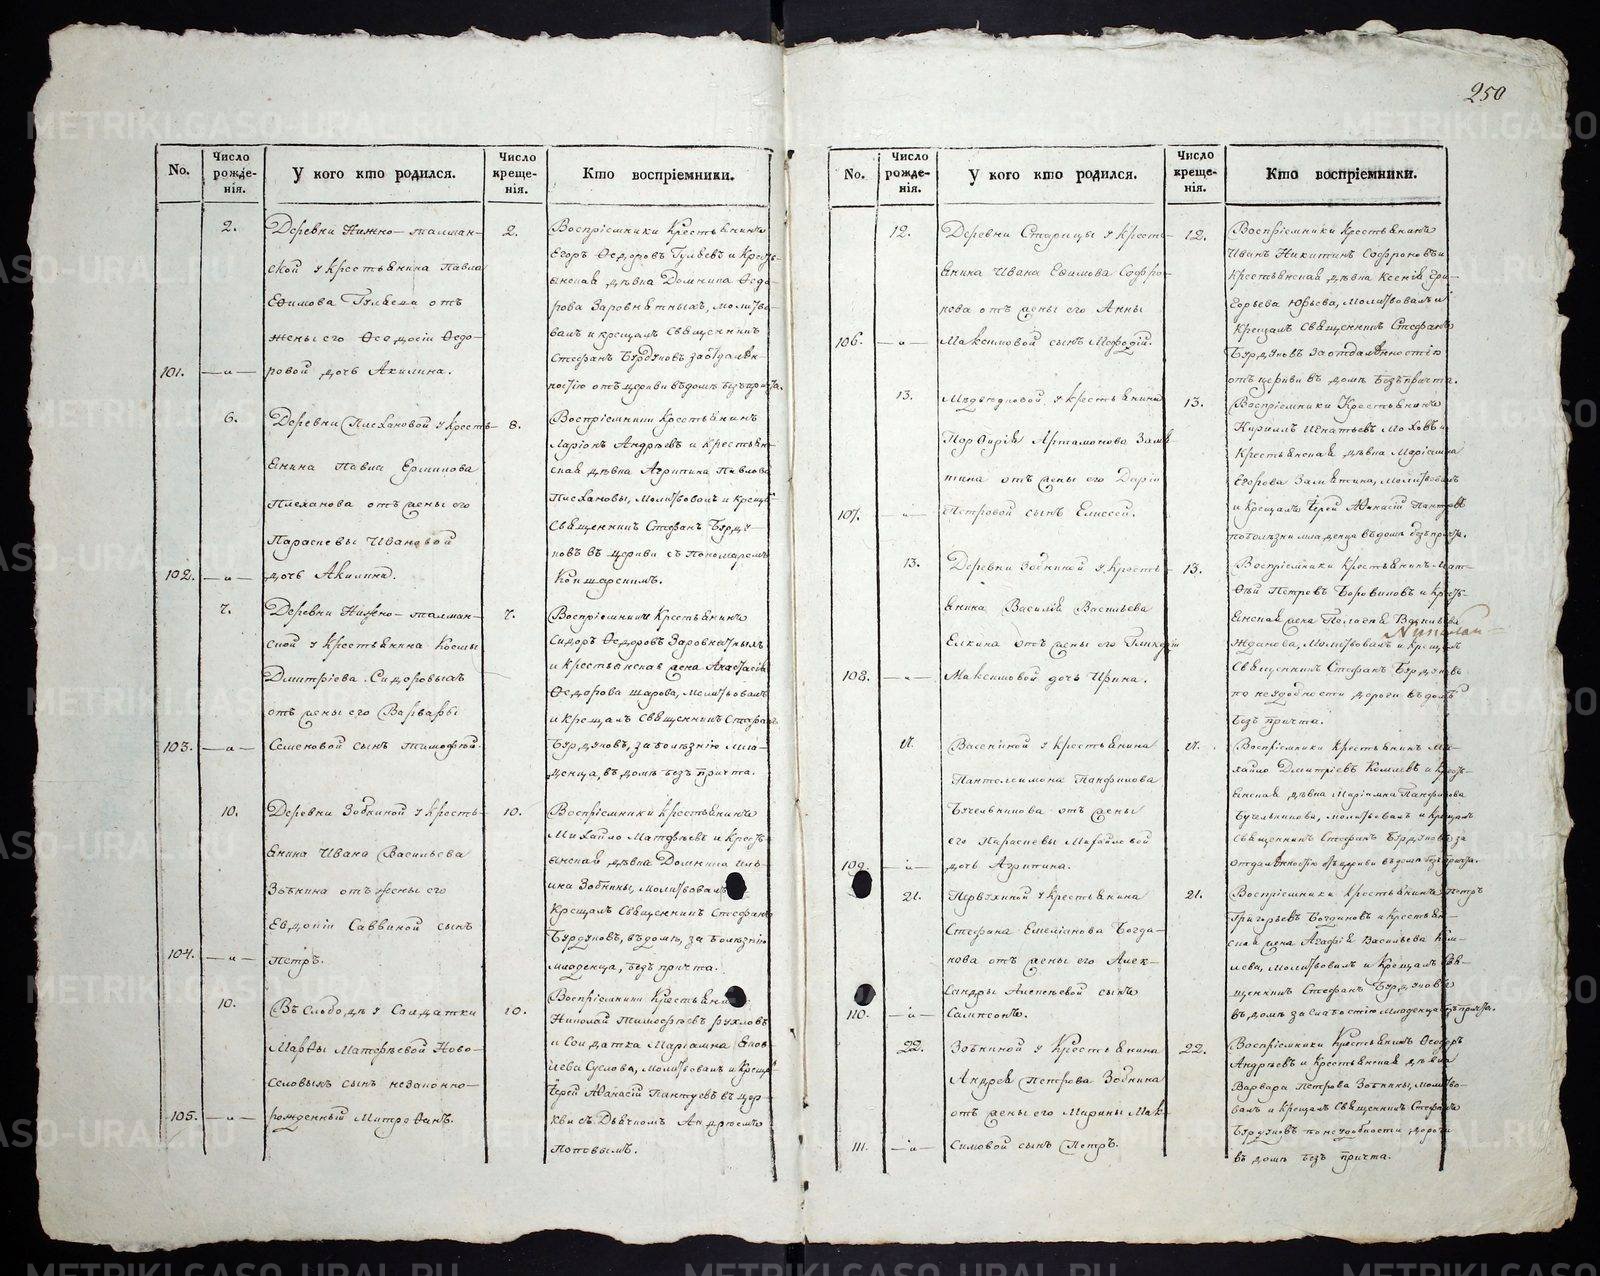 250
No. Число рожде-нія. У кого кто родился. Число креще-нія. Кто воспріемники.
2. Деревни Нижно-талман-
ской у крестьянина Павла
Ефимова Гуляева отъ
жены его Ѳеодосіи Ѳедо-
101. —„— ровой дочь Акилина.
2. Воспріемники крестьянинъ
Егоръ Ѳедоровъ Гуляевъ и кресть-
янская дѣвка Домника Ѳедо-
рова Заровнятныхъ, молитво-
валъ и крещалъ Священникъ
Стефанъ Бурдуковъ за отдален-
ностію отъ церкви въ домѣ безъ причта.
6. Деревни Плехановой у кресть-
янина Павла Ермилова
Плеханова отъ жены его
Параскевы Ивановой
102. —„— дочь Акилина.
8. Воспріемники крестьянинъ
Ларіонъ Андрѣевъ и крестьян-
ская дѣвка Агрипина Павлова
Плехановы, молитвовалъ и крещалъ
Священникъ Стефанъ Бурду-
ковъ въ церкви съ Пономаремъ
Кокшарскимъ.
7. Деревни Нижно-талман-
ской у крестьянина Космы
Дмитріева Сидоровыхъ
отъ жены его Варвары
103. —„— Семеновой сынъ Тимофѣй.
7. Воспріемники крестьянинъ
Сидоръ Ѳедоровъ Заровнятныхъ
и крестьянская жена Анастасія
Ѳедорова Шарова, молитвовалъ
и крещалъ Священникъ Стефанъ
Бурдуковъ, за болѣзнію мла-
денца, въ домѣ безъ причта.
10. Деревни Зобниной у кресть-
янина Ивана Васильева
Зобнина отъ жены его
Евдокіи Саввиной сынъ
104. —„— Петръ.
10. Воспріемники крестьянинъ
Михайло Матфѣевъ и кресть-
янская дѣвка Домника Иль-
ина Зобнины, молитвовалъ
крещалъ Священникъ Стефанъ
Бурдуковъ, въ домѣ, за болѣзнію
младенца, безъ причта.
10. Въ Слободѣ у Солдатки
Марѳы Матфѣевой Ново-
селовыхъ сынъ незаконно-
105. —„— рожденный Митрофанъ.
10. Воспріемники крестьянинъ
Николай Тимофѣевъ
и Солдатка Маріамна
Суслова, молитвовалъ и крещалъ
Іерей Аѳанасій Пантуевъ въ цер-
кви съ Дьячкомъ Андреемъ
Поповымъ.
No. Число рожде-нія. У кого кто родился. Число креще-нія. Кто воспріемники.
12. Деревни Старицы у кресть-
янина Ивана Ефимова Софро-
нова отъ жены его Анны
106. —„— Максимовой сынъ Меѳодій.
12. Воспріемники крестьянинъ
Иванъ Никитинъ Софроновъ и
крестьянская дѣвка Ксенія Гри-
горьева Юрьева, молитвовалъ и
крещалъ Священникъ Стефанъ
Бурдуковъ за отдаленностію
отъ церкви въ домѣ безъ причта.
13. Медвѣдковой у крестьянина
Порфирія Артамонова Замя-
тина отъ жены его Даріи
107. —„— Петровой сынъ Елисей.
13. Воспріемники Крестьянинъ
Кирилъ Игнатьевъ Моховъ и
крестьянская дѣвка Маріамна
Егорова Замятина, молитвовалъ
и крещалъ Іерей Аѳанасій Пантуевъ
по болѣзни младенца въ домѣ безъ причта.
13. Деревни Зобниной у кресть-
янина Василія Васильева
Елкина отъ жены его Гликеріи
108. —„— Максимовой дочь Ирина.
13. Воспріемники крестьянинъ Мат-
ѳѣй Петровъ Боровиковъ и кресть-
янская жена Пелагея Васильева
Жданова, молитвовалъ и крещалъ
Священникъ Стефанъ Бурдуковъ
по неудобности дороги въ домѣ
безъ причта.
Васениной у крестьянина
Пантелеимона Панфилова
Бучельникова отъ жены
его Параскевы Михайловой
109. —„— дочь Агрипина.
Воспріемники крестьянинъ Ми-
хайло Дмитріевъ Комлевъ и кресть-
янская дѣвка Маріамна Панфилова
Бучельникова, молитвовалъ и крещалъ
священникъ Стефанъ Бурдуковъ за
отдаленностію отъ церкви въ домѣ безъ причта.
21. Первухиной у крестьянина
Стефана Емеліанова Богда-
нова отъ жены его Алек-
сандры Алексѣевой сынъ
110. —„— Сампсонъ.
21. Воспріемники крестьянинъ Петръ
Григорьевъ Богдановъ и крестьян-
ская жена Агафія Васильева Ком-
лева, молитвовалъ и крещалъ Свя-
щенникъ Стефанъ Бурдуковъ
въ домѣ за слабостію младенца безъ причта.
22. Зобниной у крестьянина
Андрея Петрова Зобнина
отъ жены его Марины Мак-
111. —„— симовой сынъ Петръ.
22. Воспріемники крестьянинъ Ѳеодоръ
Андрѣевъ и крестьянская дѣвка
Варвара Петрова Зобнины, молитво-
валъ и крещалъ Священникъ Стефанъ
Бурдуковъ по неудобности дороги
въ домѣ безъ причта.
METRIKI.GASO-URAL.RU